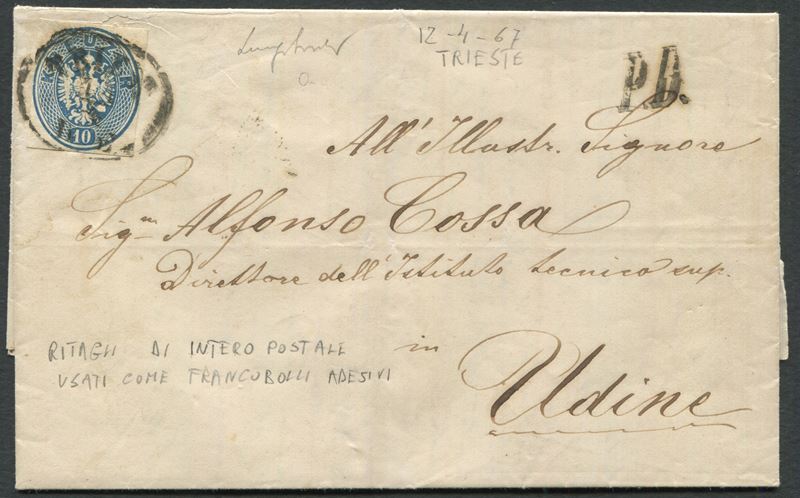 KREUZER
10
12-4-67
TRIESTE
P.D.
All'Illustr. Signore
Sigre Alfonso Cossa
Direttore dell'Istituto tecnico sup.
in
Udine
RITAGLI DI INTERO POSTALE
USATI COME FRANCOBOLLI ADESIVI